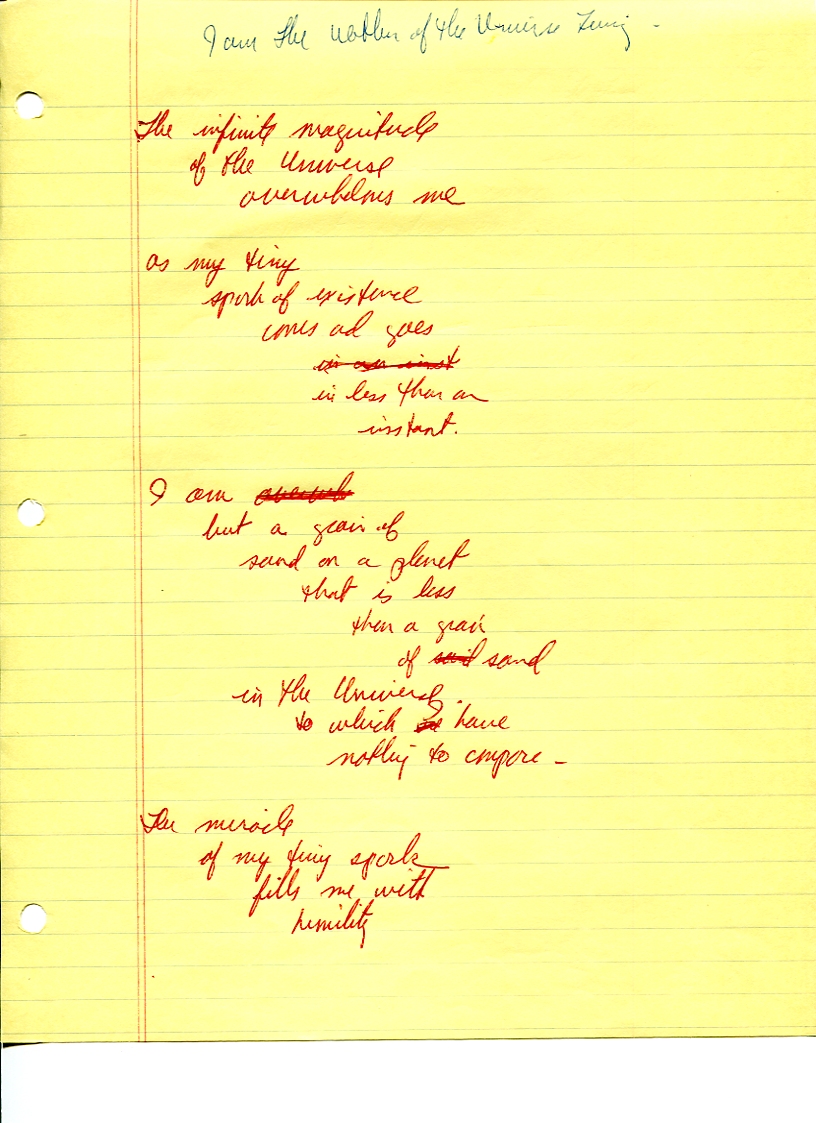 I am the of the Universe
The infinite magnitude
of the Universe
overwhelms me
as my tiny
spark of existence
comes ad goes
in an inst
in less than an
instant.
I am overwh
but a grain of
sand on a planet
that is less
than a grain
of sand
in the Universe.
to which I have
nothing to compare -
The miracle
of my tiny spark
fills me with
humility